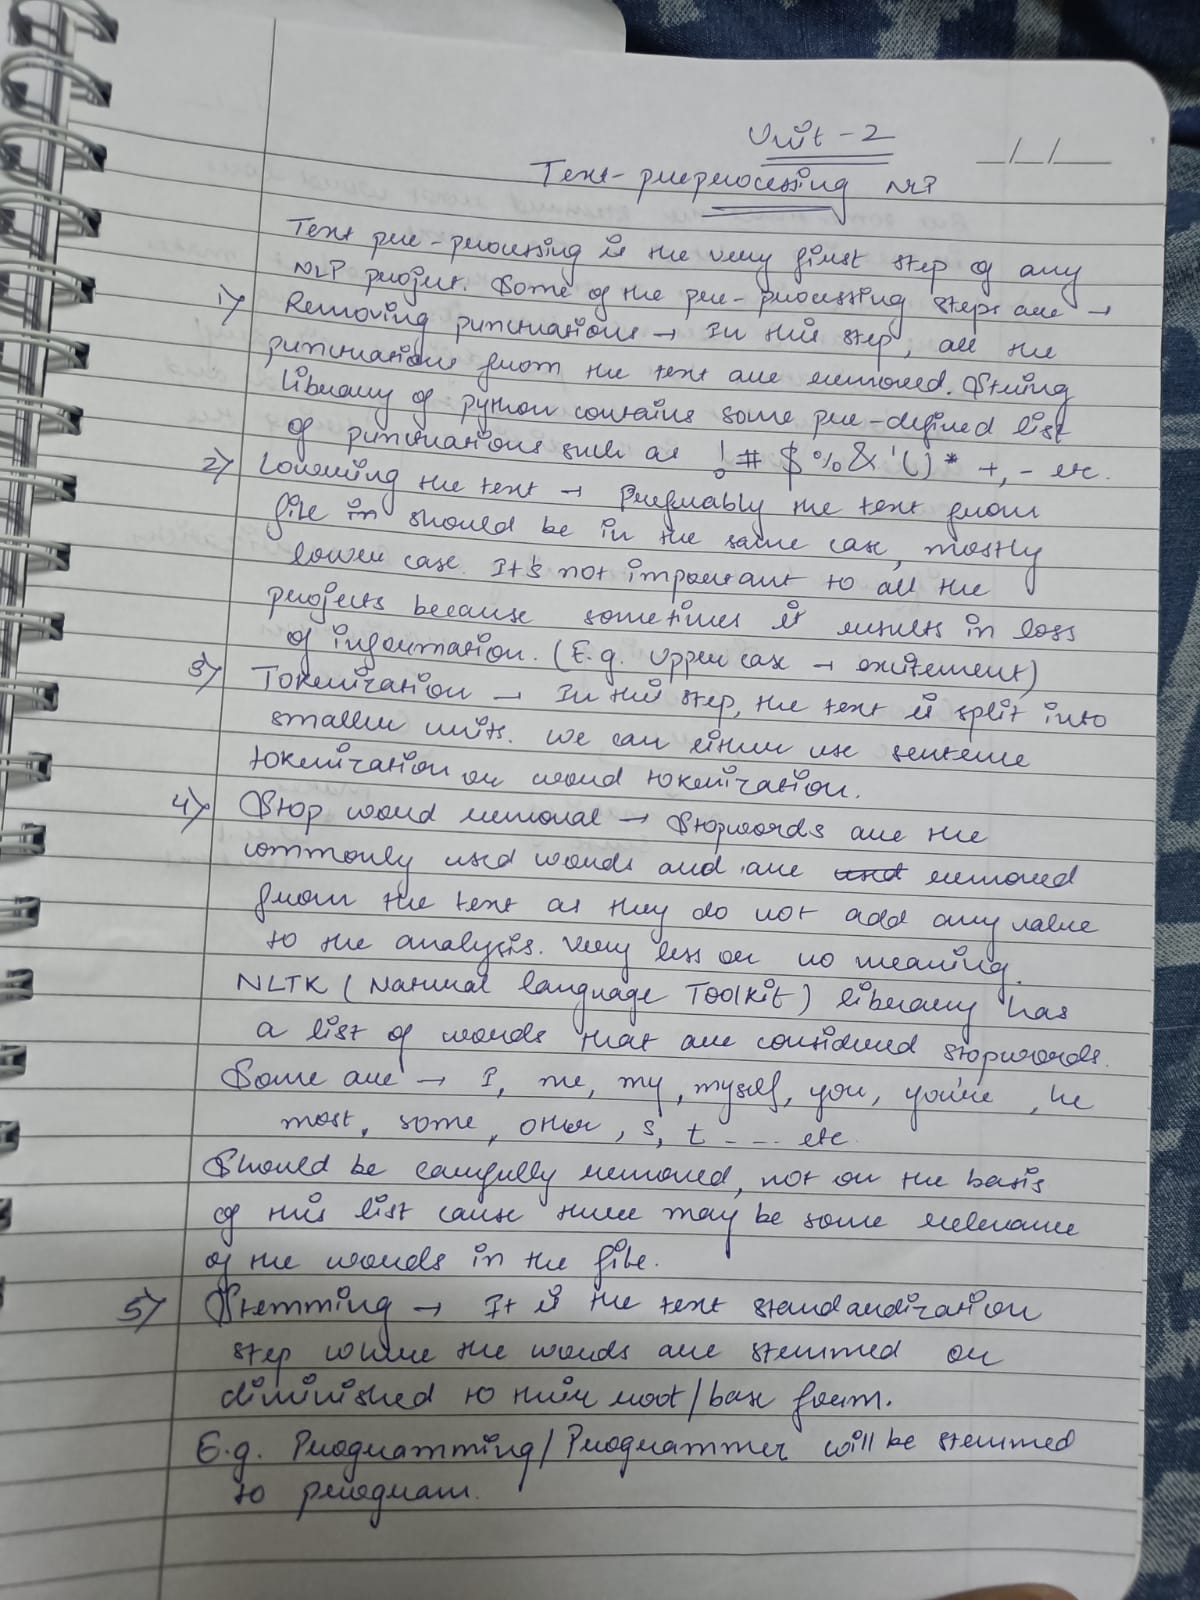 Unit - 2
_/_/_
Text-preprocessing NLP
Text pre-processing is the very first step of any
NLP project. Some of the pre-processing steps are →
1) Removing punctuations → In this step, all the
punctuations from the text are removed. String
library of python contains some pre-defined list
of punctuations such as ! # $ % & ' ( ) * +, - etc.
2) Lowering the text → Preferably the text from
file in should be in the same case, mostly
lower case. It's not important to all the
projects because sometimes it results in loss
of information. (E.g. Upper case → excitement)
3) Tokenization → In this step, the text is split into
smaller units. we can either use sentence
tokenization or word tokenization.
4) Stop word removal → Stopwords are the
commonly used words and are removed
from the text as they do not add any value
to the analysis. Very less or no meaning.
NLTK (Natural language Toolkit) library has
a list of words that are considered stopwords.
Some are → I, me, my, myself, you, you're, he
most, some, other, s, t ---- etc.
Should be carefully removed, not on the basis
of this list cause there may be some relevance
of the words in the file.
5) Stemming → It is the text standardization
step where the words are stemmed or
diminished to their root/base form.
E.g. Programming/Programmer will be stemmed
to program.